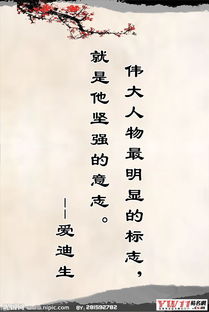 伟大人物最明显的标志，
就是他坚强的意志。
——爱迪生
YW11